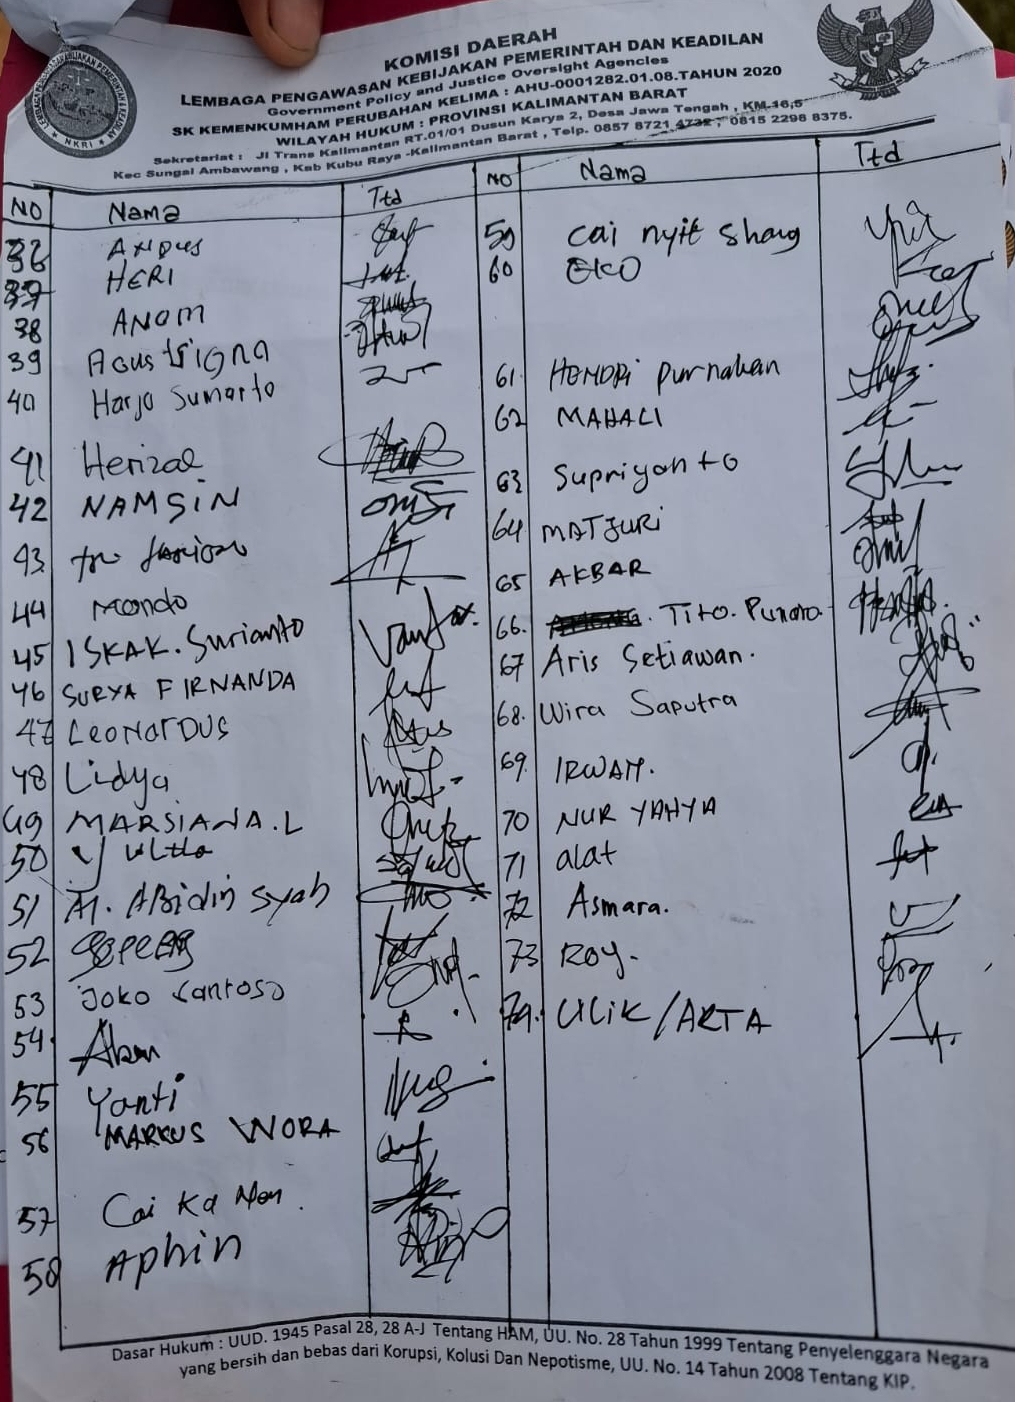 KOMISI DAERAH
LEMBAGA PENGAWASAN KEBIJAKAN PEMERINTAH DAN KEADILAN
Government Policy and Justice Oversight Agencies
SK KEMENKUMHAM PERUBAHAN KELIMA : AHU-0001282.01.08.TAHUN 2020
WILAYAH HUKUM : PROVINSI KALIMANTAN BARAT
Sekretariat : Jl Trans Kalimantan RT.01/01 Dusun Karya 2, Desa Jawa Tengah , KM-16,5
Kec Sungai Ambawang , Kab Kubu Raya -Kalimantan Barat , Telp. 0857 8721 4732 , 0815 2298 8375.
NKRI
NO Nama Ttd
36
37 HERI
38 ANOM
39 Agus trigna
40 Harjo Sumarto
41 Herizal
42 NAMSIN
43
44 Mondo
45 ISKAK. Surianto
46 SURYA FIRNANDA
47 LeoNarDUS
48 Lidya
49 MARSIANA.L
50
51 M. ABidin Syah
52
53 Joko Santoso
54.
55 Yanti
56 MARKUS WORA
57 Cai Ka
58 Aphin
NO Nama Ttd
59 Cai nyit Shang
60 EKO
61. HENDRI purnawan
62 MAHALI
63 Supriyanto
64 MATJURI
65 AKBAR
66. Tito.
67 Aris Setiawan.
68. Wira Saputra
69. IRWAN.
70 NUR YAHYA
71 alat
72 Asmara.
73 Roy.
74. ULIK/ARTA
Dasar Hukum : UUD. 1945 Pasal 28, 28 A-J Tentang HAM, UU. No. 28 Tahun 1999 Tentang Penyelenggara Negara
yang bersih dan bebas dari Korupsi, Kolusi Dan Nepotisme, UU. No. 14 Tahun 2008 Tentang KIP.